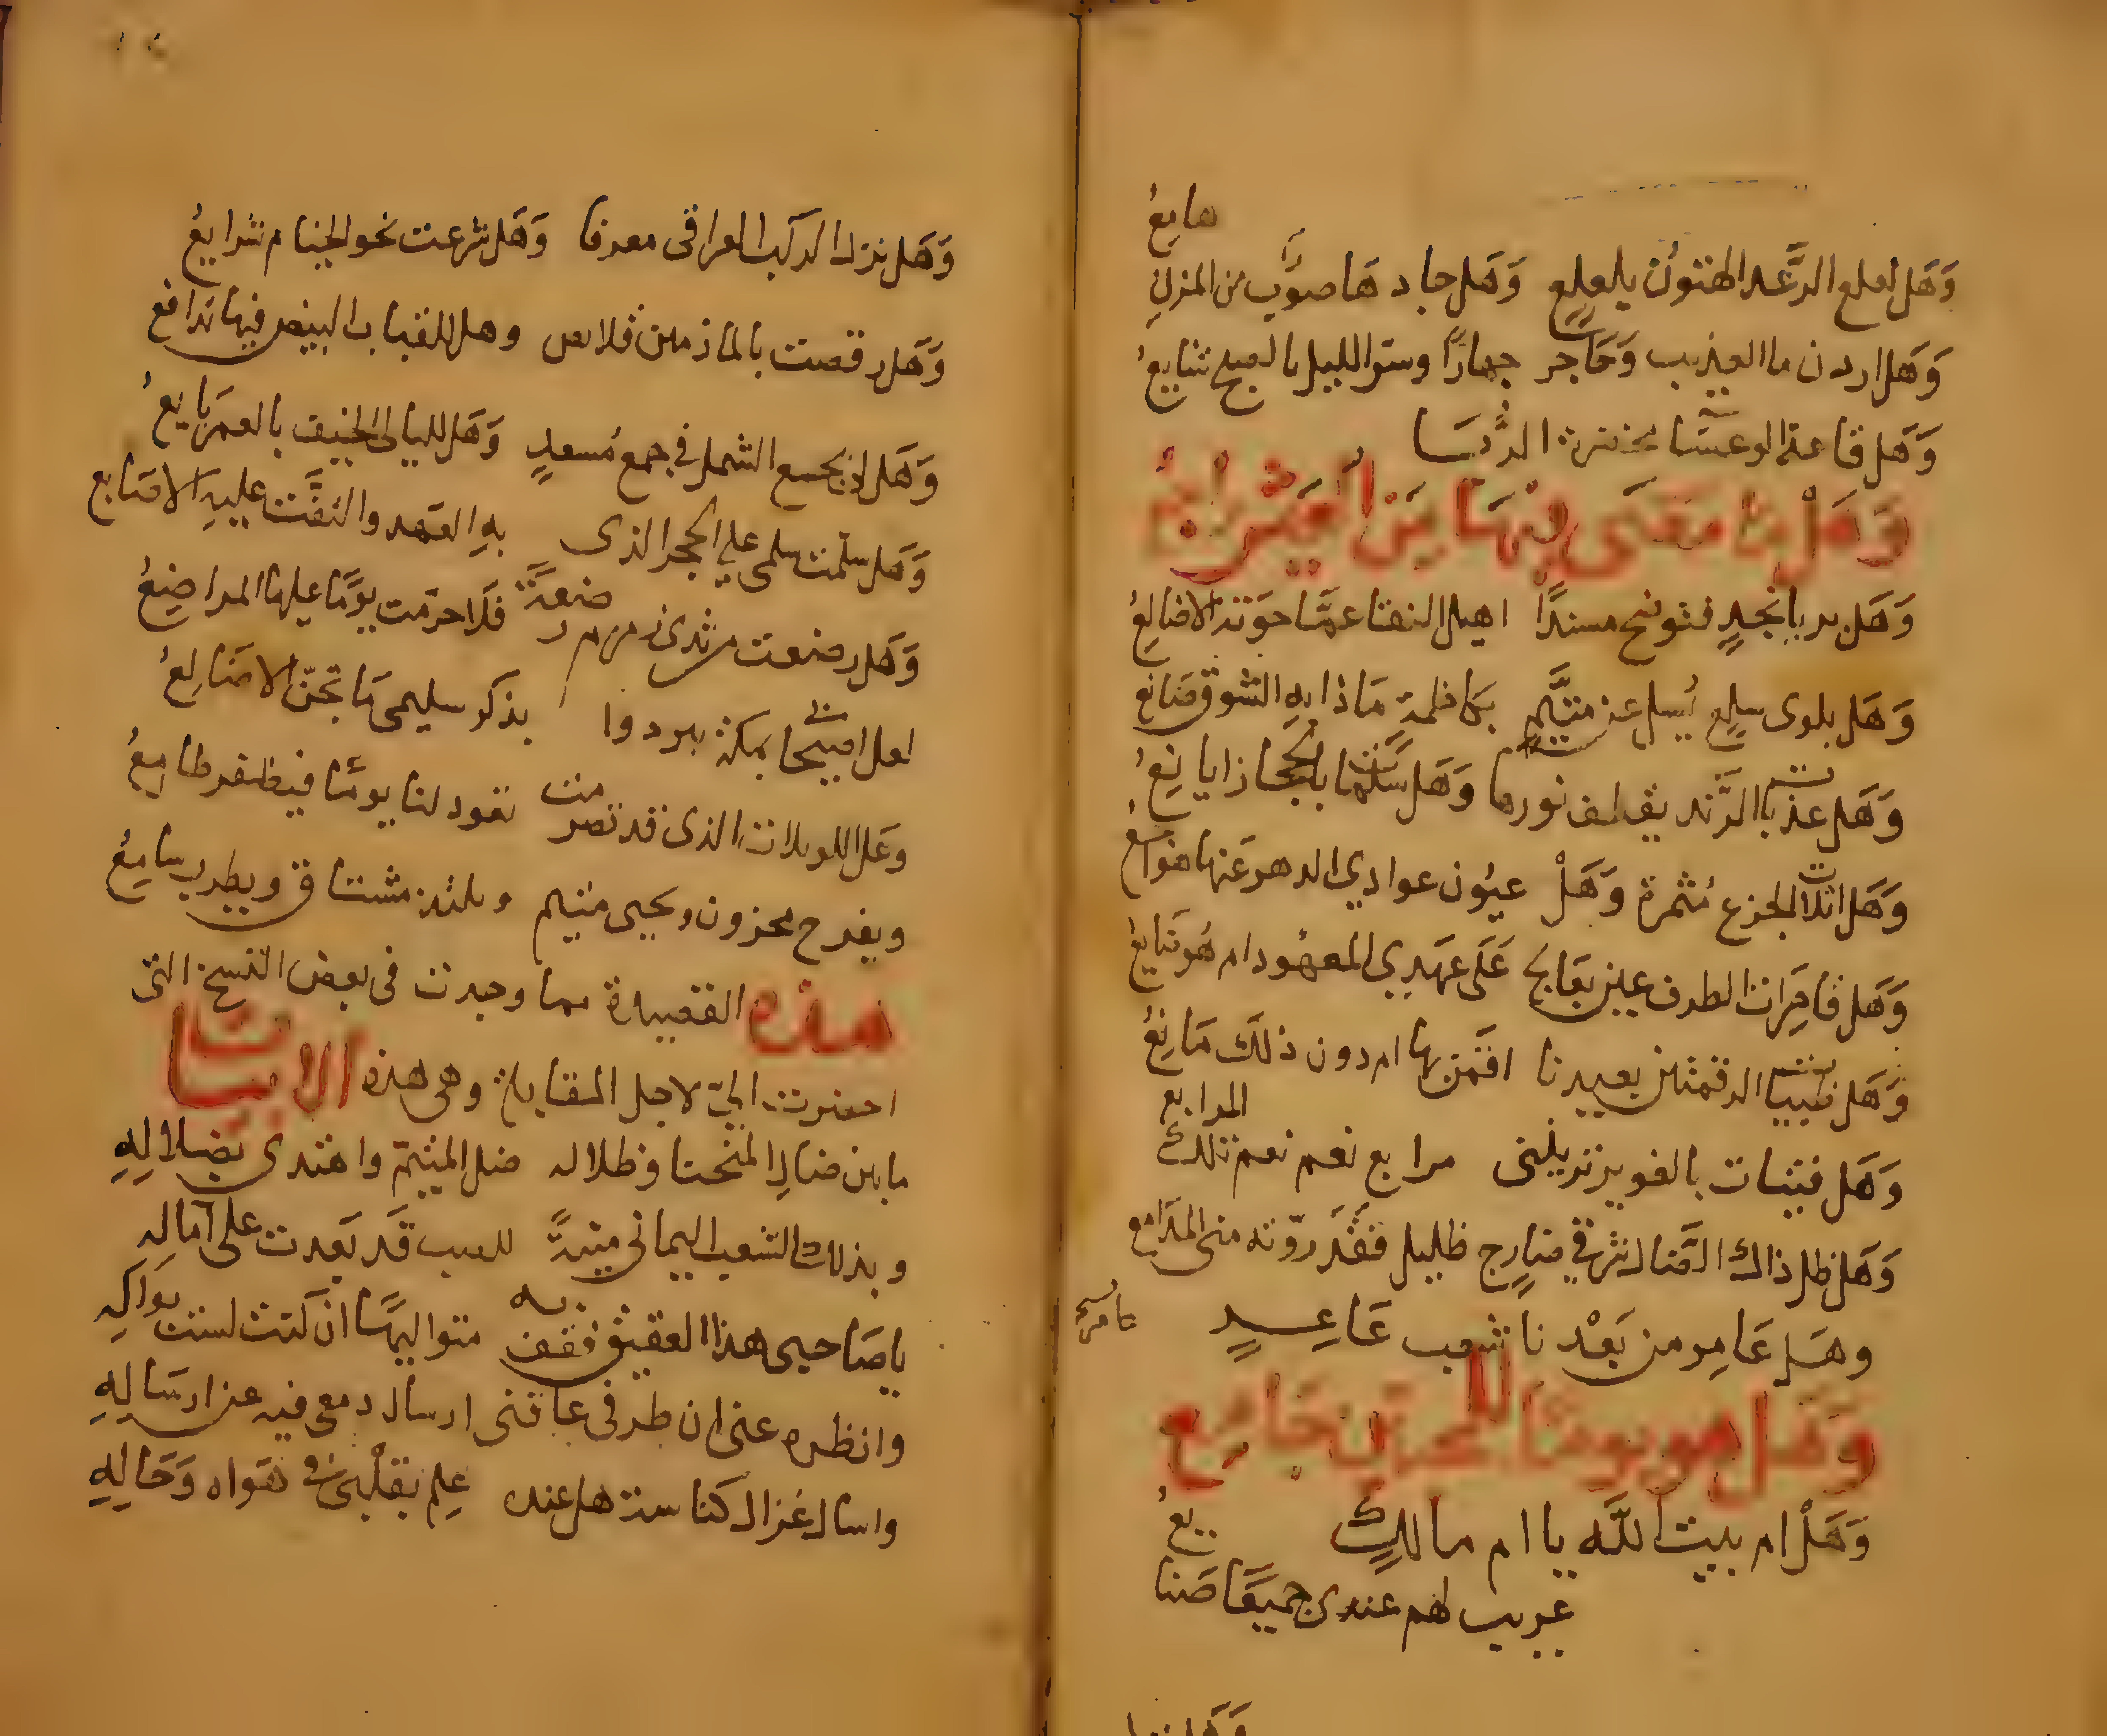 هامع
وَهَل لعلع الرَّعد الهتون بلعلعٍ وَهَل جادهَا صوبٌ من المزن
وَهَل اردن ما العذيب وَحَاجر جهارًا وسر الليل بالصبح شايعُ
وَهَل قاعة الوعسَا مخضرة الرُّبَسَا
وَهَلْ مَا مَضَى فِيهَا مِنَ العَيْشِ رَاجِعُ
وَهَل بربا نجدٍ فتوضح مسندًا اهيل النقا عمَّا حوَته الاضالعُ
وَهَل بلوى سلعٍ يُسل عن متيَّمٍ بكاظمةٍ مَاذا بهِ الشوق صَانع
وَهَل عذبات الرَّند يقطف نورها وَهَل سَلمَات بالحجاز ايانعُ
وَهَل اثلات الجزع مُثمرة وَهَلْ عيُون عوادي الدهر عَنها هواجع
وَهَل قاصِرَات الطرف عين بعَالجٍ عَلَى عهَدِي المعهُود ام هُو ضَايعُ
وَهَل ظبيات الرقمتين بعيدنا اقمَن بها ام دون ذلكَ مَانعُ
المرابع
وَهَل فتيات بالغوير يرينى مرابع نعم نعم تلك
وَهَل ظل ذاك الضَّال شرقي ضارج ظليل فقَد روّته منى المَدَامع
وهَل عَامر من بَعْدنا شعب عَاعِدٍ
عامر
وَهَل هو يومًا للمحبين جَامع
وَهَلْ ام بيت اللَّه يا ام مالكٍ
يعُ
عريب لهم عندى جميعًا صَنا
وَهَل نزل الركب العراقى معرفا وَهَل شرعت نحو الخيام شرايعُ
وَهَل رقصت بالمازمين قلائص وهل للقباب البيض فيها تدافع
وَهَل لى بجمع الشمل في جمع مُسعدٍ وَهَل لليالي الخيف بالعمر بَايعُ
وَهَل سلّمت سلمى على الحجر الذى بهِ العَهد والتفَّت عليهِ الاصَابع
وَهَل رضعت من ثدى زمزم رضعةً فلَا حرّمت يومًا عليها المراضِعُ
لعل اصيحابى بمكة يبردوا بذكر سليمى مَا تجنّ الاضَالعُ
وعَل اللويلات الذى قد تصرمت تعود لنا يومًا فيظفر طامِعُ
ويفرح محزون ويحيى متيم ويلتذ مشتاق ويطرب سَامِعُ
هذه القصيدة مما وجدت فى بعض النسخ التى
احضرت اليّ لاجل المقابلة وهى هذه الابيات
ما بين ضال المنحنا وظلاله ضل المتيّم واهتدى بضلالِهِ
وبذلك الشعب اليمانى منيةً للصب قَد بَعدت على آمالِه
ياصَاحبى هذا العقيق فقف به متوالهًا ان كنت لست بوَالهِ
وانظره عنى ان طرفى عاقنى ارسال دمعى فيه عن ارسَالهِ
واسال غزال كناسه هل عنده عِلم بقلْبى فى هَواه وَحَالِهِ